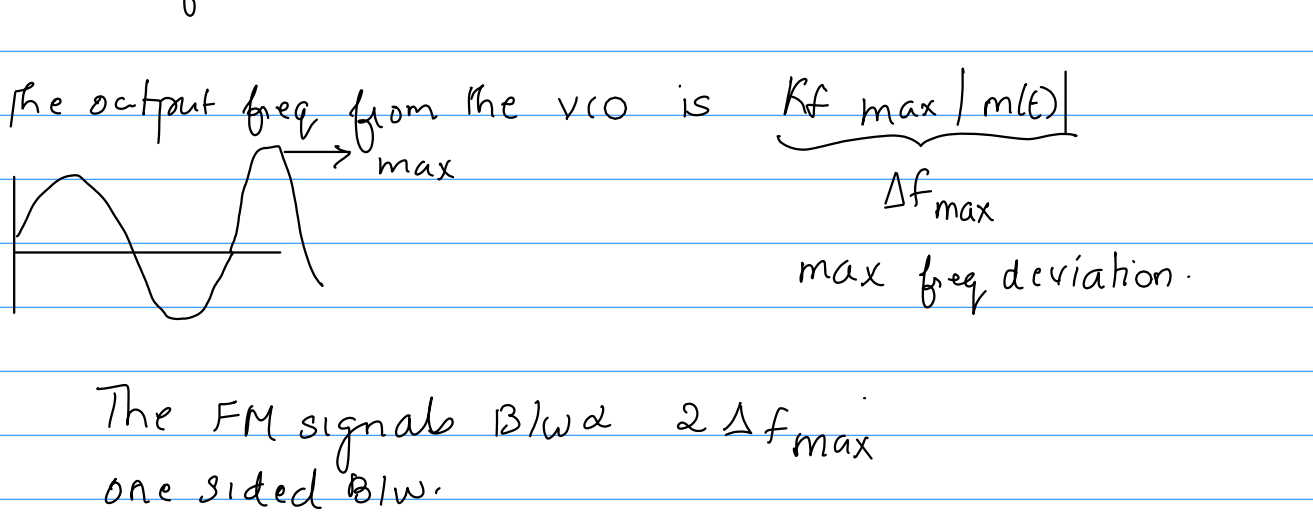 The output freq from the VCO is Kf max |m(t)|
max
Δf max
max freq deviation.
The FM signals B/w α 2 Δf max
one sided B/w.